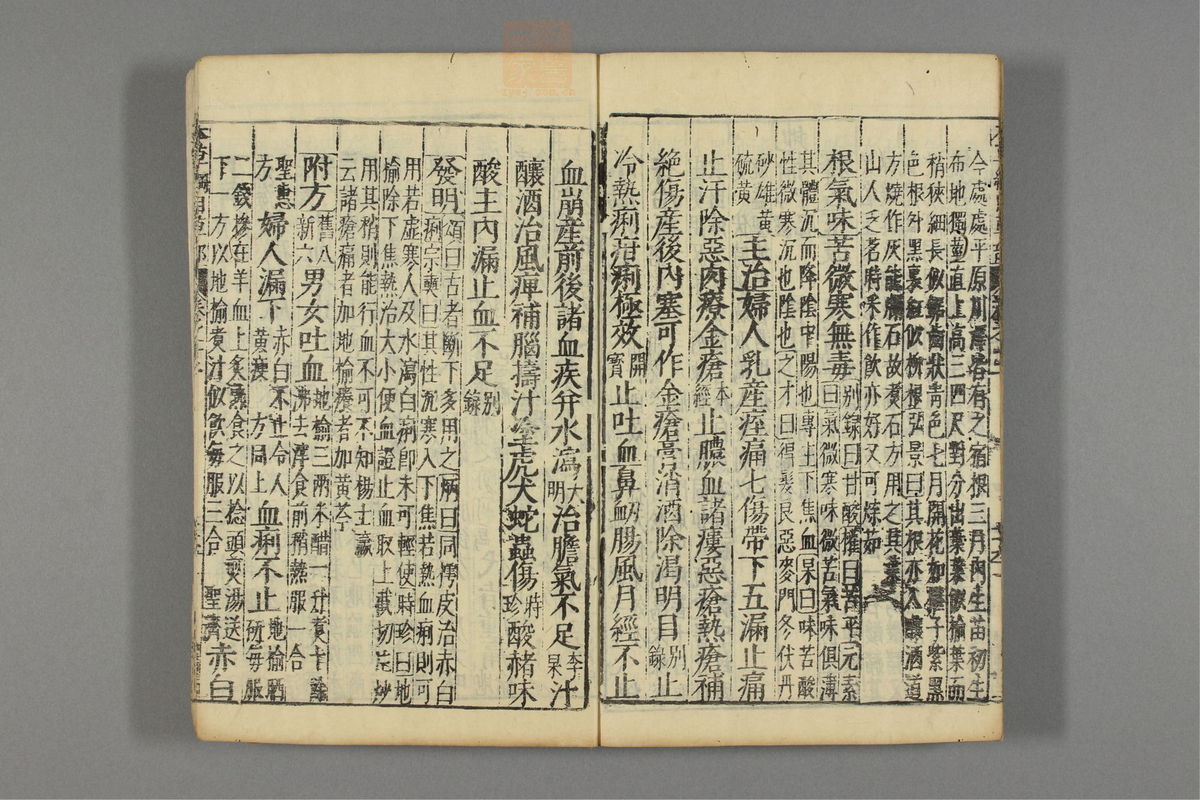 今處處平原川澤皆有之宿根三月內生苗初生
布地獨莖直上高三四尺對分出葉葉似榆葉而
稍狹細長似鋸齒狀青色七月開花如椹子紫黑
色根外黑裏紅似柳根弘景曰其根亦入釀酒道
方燒作灰能爛石故煑石方用之其葉
山人乏茗時采作飲亦好又可煠茹
根氣味苦微寒無毒别錄曰甘酸權曰苦平元素
曰氣微寒味微苦氣味俱薄
其體沉而降陰中陽也專主下焦血杲曰味苦酸
性微寒沉也陰也之才曰得髮良惡麥門冬伏丹
砂雄黃
硫黃主治婦人乳產痓痛七傷帶下五漏止痛
止汗除惡肉療金瘡本經止膿血諸瘻惡瘡熱瘡補
絶傷產後內塞可作金瘡膏消酒除渴明目别錄止
冷熱痢疳痢極效開寳止吐血鼻衂腸風月經不止
血崩產前後諸血疾并水瀉大明治膽氣不足李杲汁
釀酒治風痺補腦擣汁塗虎犬蛇蟲傷時珍酸赭味
酸主內漏止血不足别錄
發明頌曰古者斷下多用之炳曰同樗皮治赤白
痢宗奭曰其性沉寒入下焦若熱血痢則可
用若虛寒人及水瀉白痢卽未可輕使時珍曰地
榆除下焦熱治大小便血證止血取上截切片炒
用其稍則能行血不可不知楊士瀛
云諸瘡痛者加地榆癢者加黃芩
附方舊八
新六男女吐血地榆三兩米醋一升煑十
沸去滓食前稍熱服一合
聖惠
方婦人漏下赤白不止令人
黃瘦方同上血痢不止地榆晒
研每服
二錢摻在羊血上炙熟食之以捻頭煎湯送
下一方以地榆煑汁似飲每服三合聖濟赤白